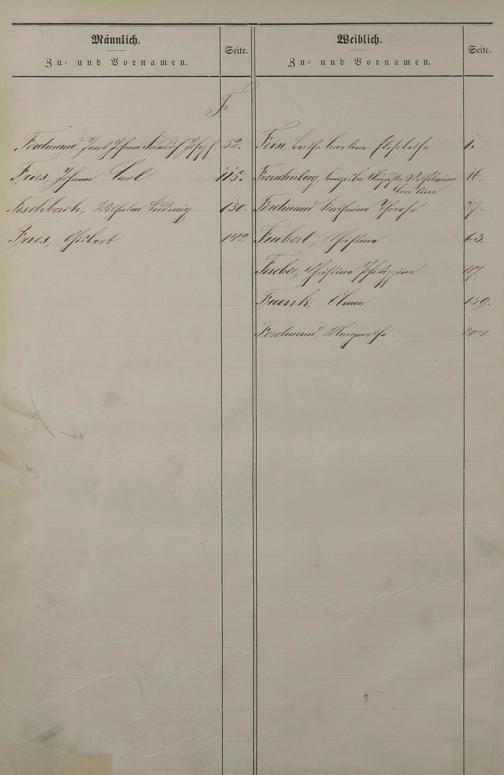 Männlich.
Zu- und Vornamen.
Seite.
Weiblich.
Zu- und Vornamen.
Seite.
F
Ferdinand, Jacob Johann Friedrich Joseph 52.
Fries, Johann Carl 115.
Fischbach, Wilhelm Ludwig 130.
Fries, 142
Bertha Carolina Elisabetha 1.
Freudenberg, Auguste Wilhelmine 16.
Caroline
Ferdinand Catharina 27.
Christina 63.
Fischer, Christina Philippine 117.
Frank, Anna 159.
Ferdinand, Margaretha 201.